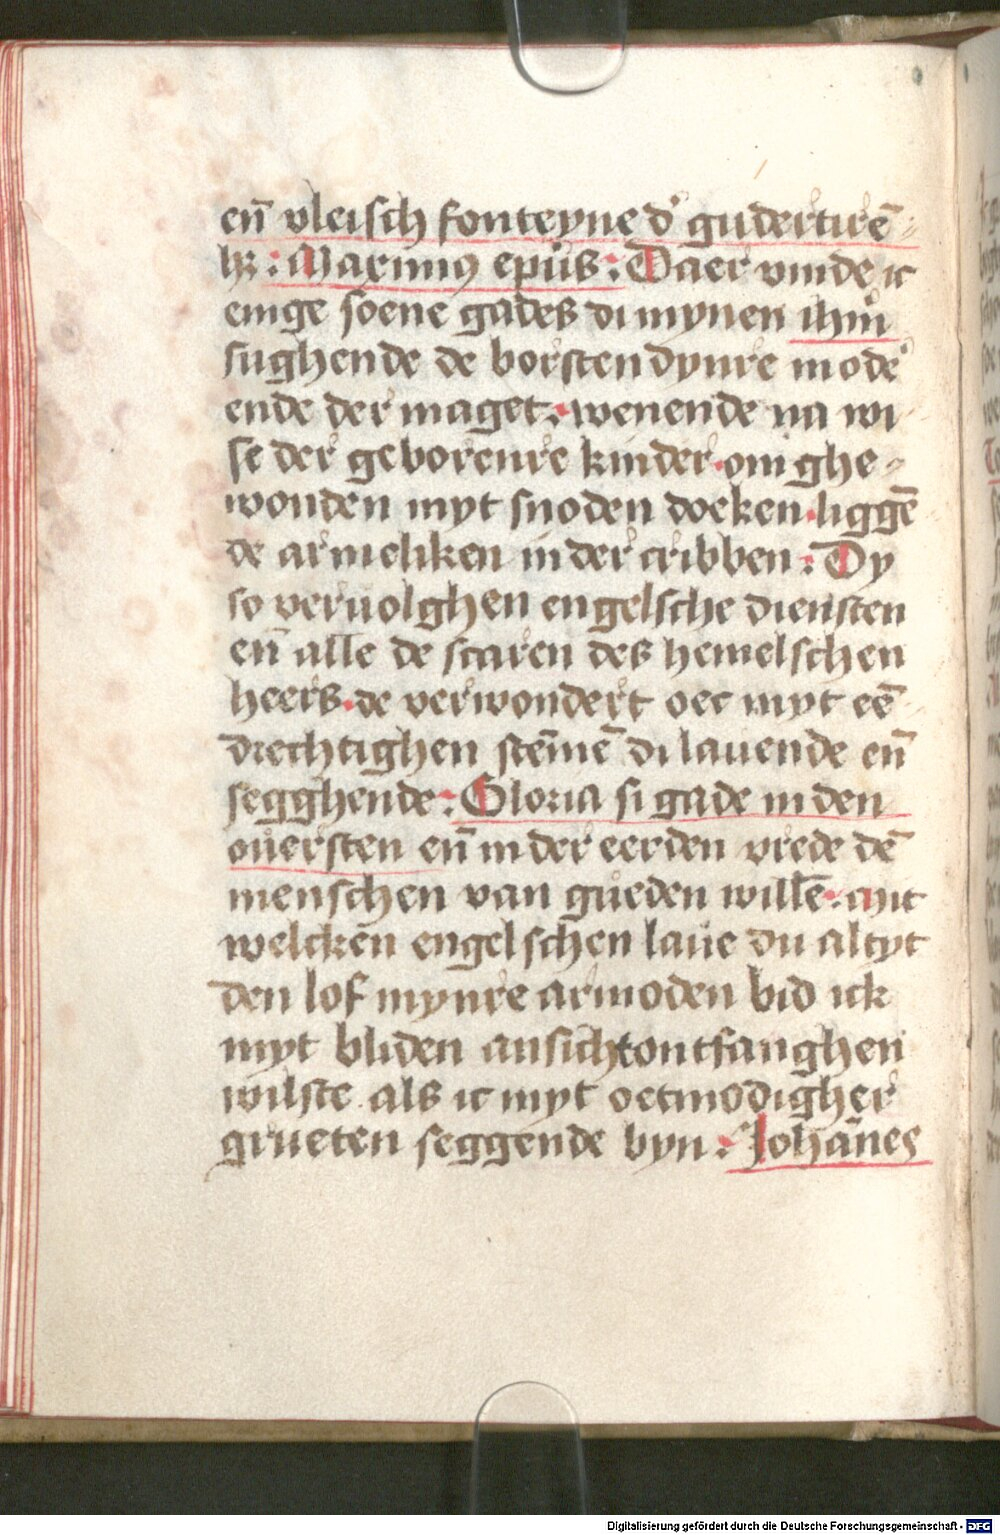 en̄ vleisch fonteyne d' gudertirē-
h₃ : Maximus epūs : Daer vinde ic
enige soene gades di mynen ihm̄
sughende de borsten dynre mode'
ende der maget. wenende na wi-
se der geborenre kinder. om ghe-
wonden myt snoden doeken. liggē
de armeliken in der cribben : Dy
so veruolghen engelsche diensten
en̄ alle de scaren des hemelschen
heers. de verwondert oec myt eē
drechtighen stēmē di lauende en̄
segghende : Gloria si gade in den
ouersten en̄ in der eerden vrede dē
menschen van gueden willē : Mit
welcken engelschen laue du altyt
den lof mynre armoden bid ick
myt bliden ansicht ontfanghen
wilste. als ic myt oetmodigher
grueten seggende byn : Johānes
Digitalisierung gefördert durch die Deutsche Forschungsgemeinschaft - DFG